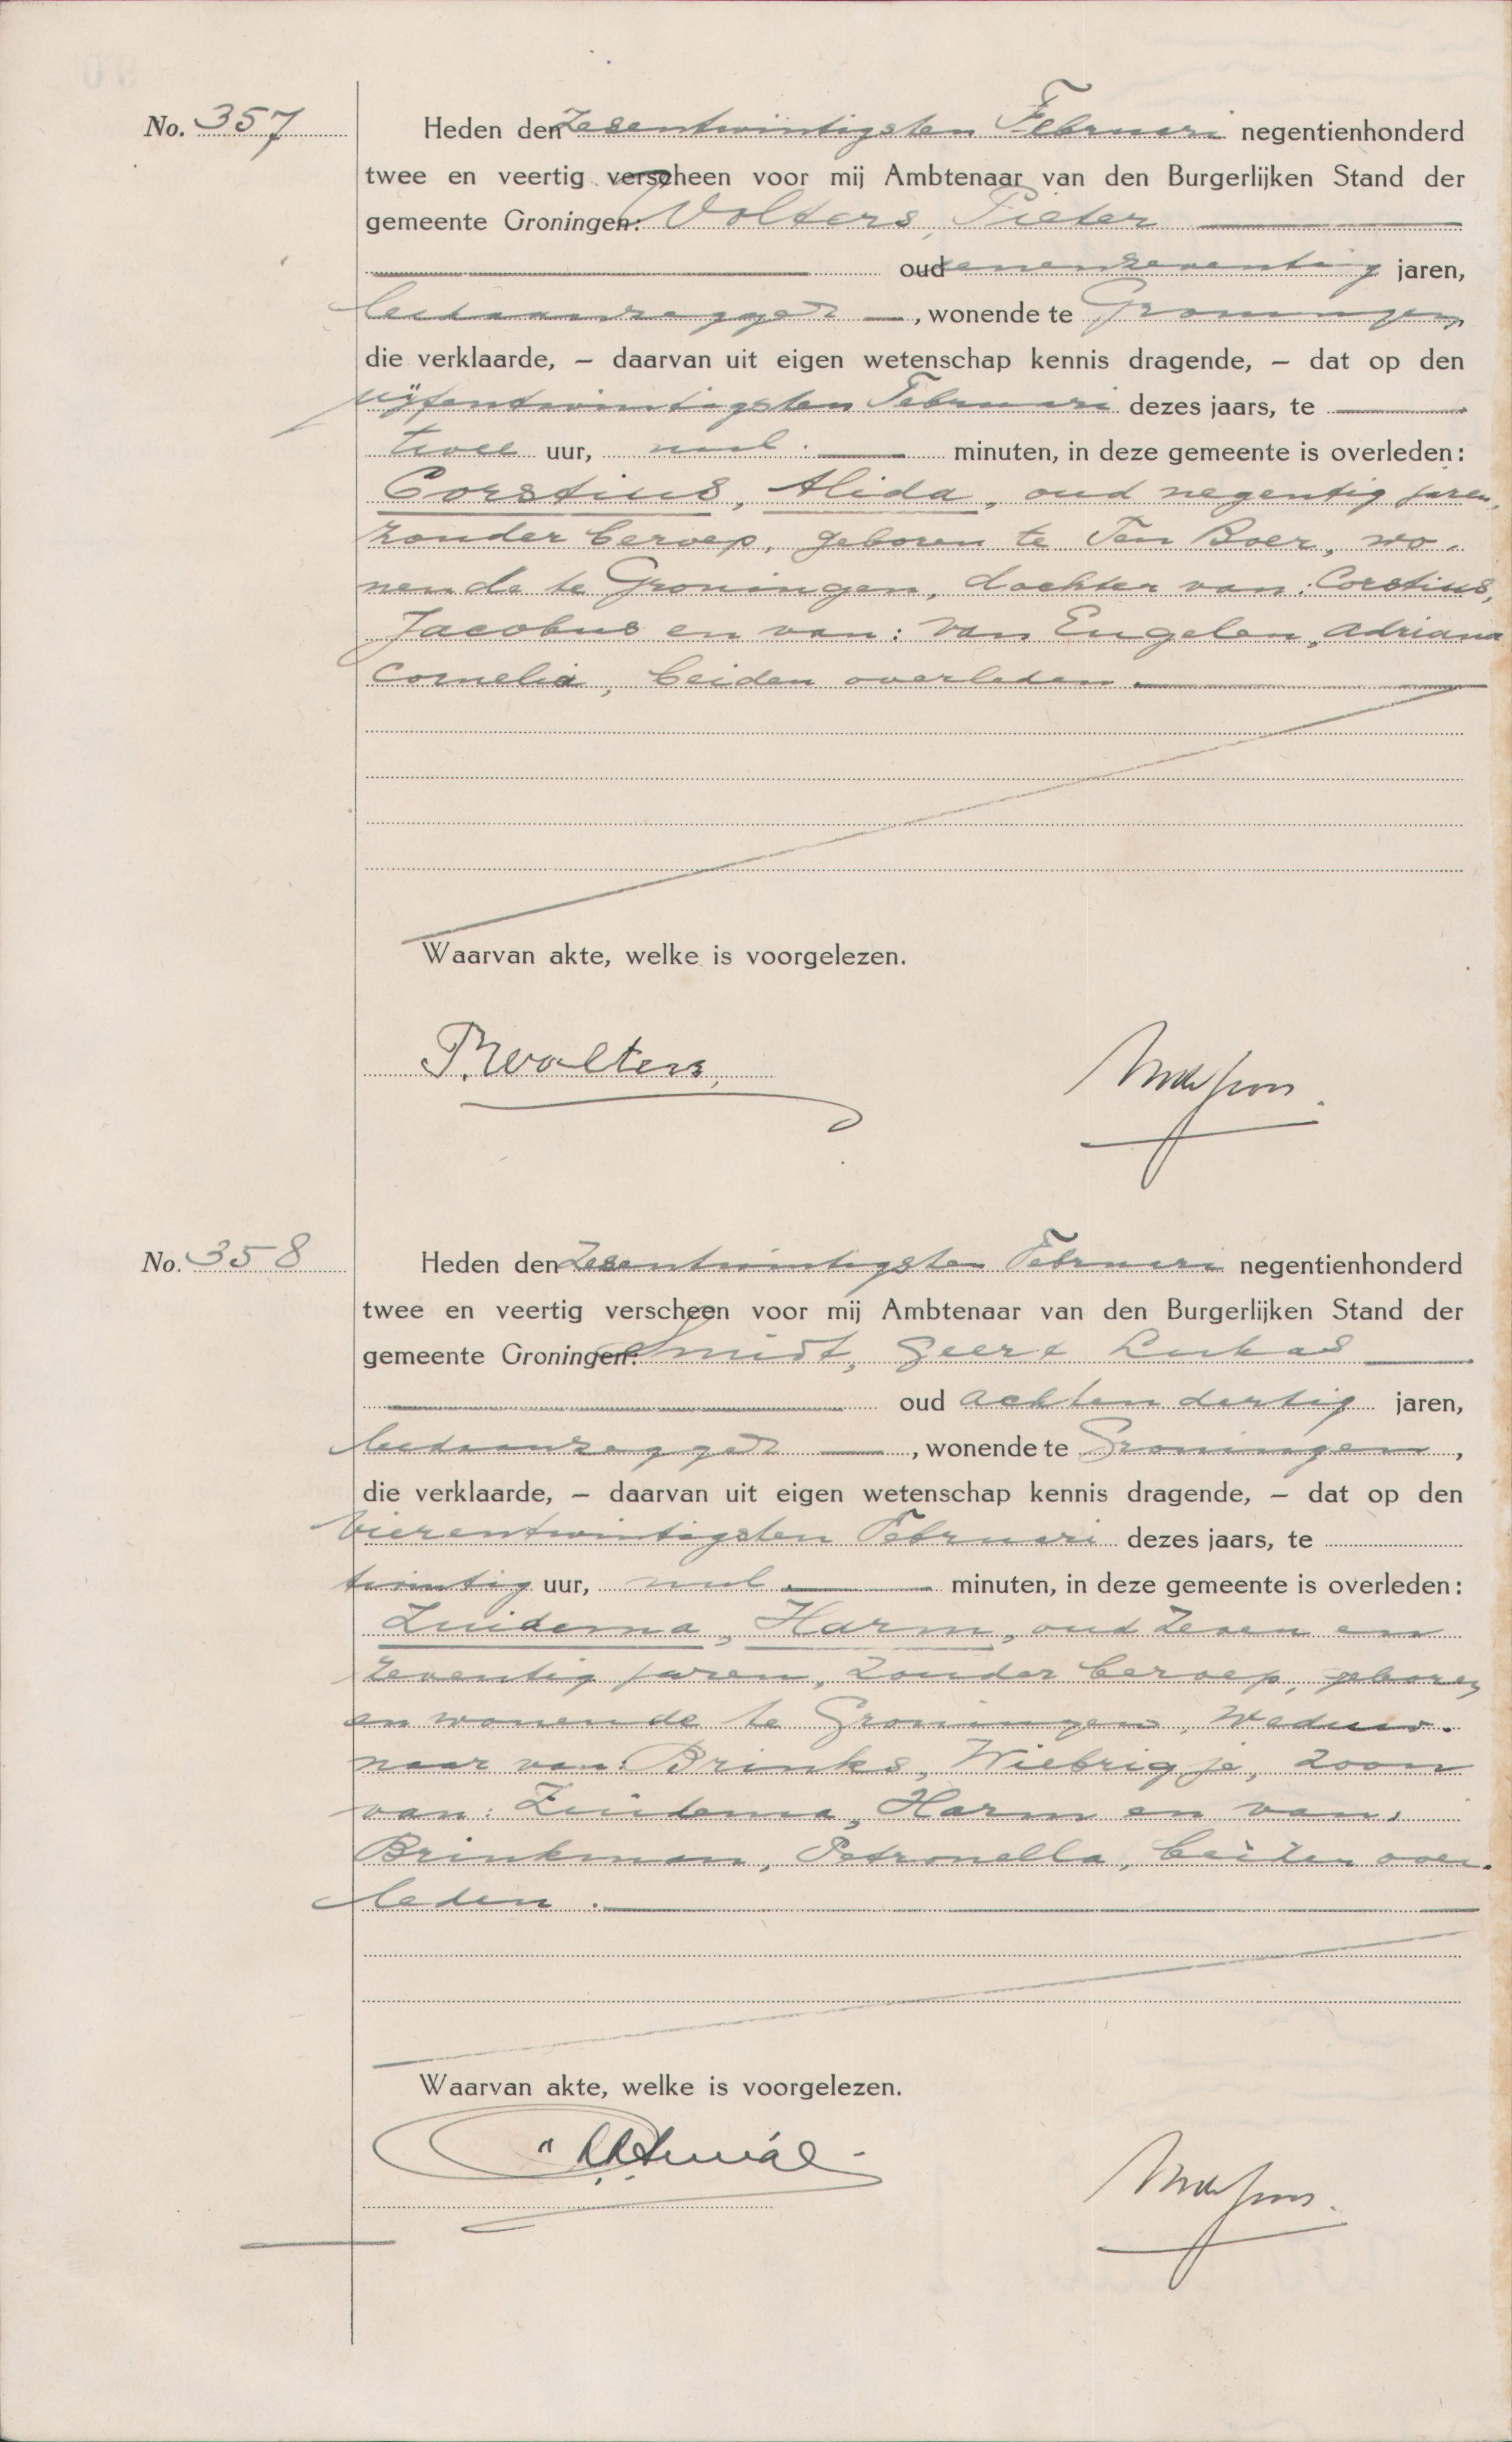 No. 357
Heden den Zesentwintigsten Februari negentienhonderd
twee en veertig verscheen voor mij Ambtenaar van den Burgerlijken Stand der
gemeente Groningen: Wolters, Pieter
oud eenenzeventig jaren,
leedaanzegger, wonende te Groningen,
die verklaarde, – daarvan uit eigen wetenschap kennis dragende, – dat op den
vijfentwintigsten Februari dezes jaars, te
twee uur, nul minuten, in deze gemeente is overleden:
Corstius, Alida, oud negentig jaren,
zonder beroep, geboren te Ten Boer, wo-
nende te Groningen, dochter van: Corstius,
Jacobus en van: van Engelen, Adriana
Cornelia, beiden overleden.
Waarvan akte, welke is voorgelezen.
P. Wolters
No. 358
Heden den Zesentwintigsten Februari negentienhonderd
twee en veertig verscheen voor mij Ambtenaar van den Burgerlijken Stand der
gemeente Groningen: Smidt, Geert Lukas
oud achtendertig jaren,
leedaanzegger, wonende te Groningen,
die verklaarde, – daarvan uit eigen wetenschap kennis dragende, – dat op den
vierentwintigsten Februari dezes jaars, te
twintig uur, nul minuten, in deze gemeente is overleden:
Zuidema, Harm, oud zeven en
zeventig jaren, zonder beroep, geboren
en wonende te Groningen, weduw-
naar van: Brinks, Wiebrigje, zoon
van: Zuidema, Harm en van:
Brinkman, Petronella, beiden over-
leden.
Waarvan akte, welke is voorgelezen.